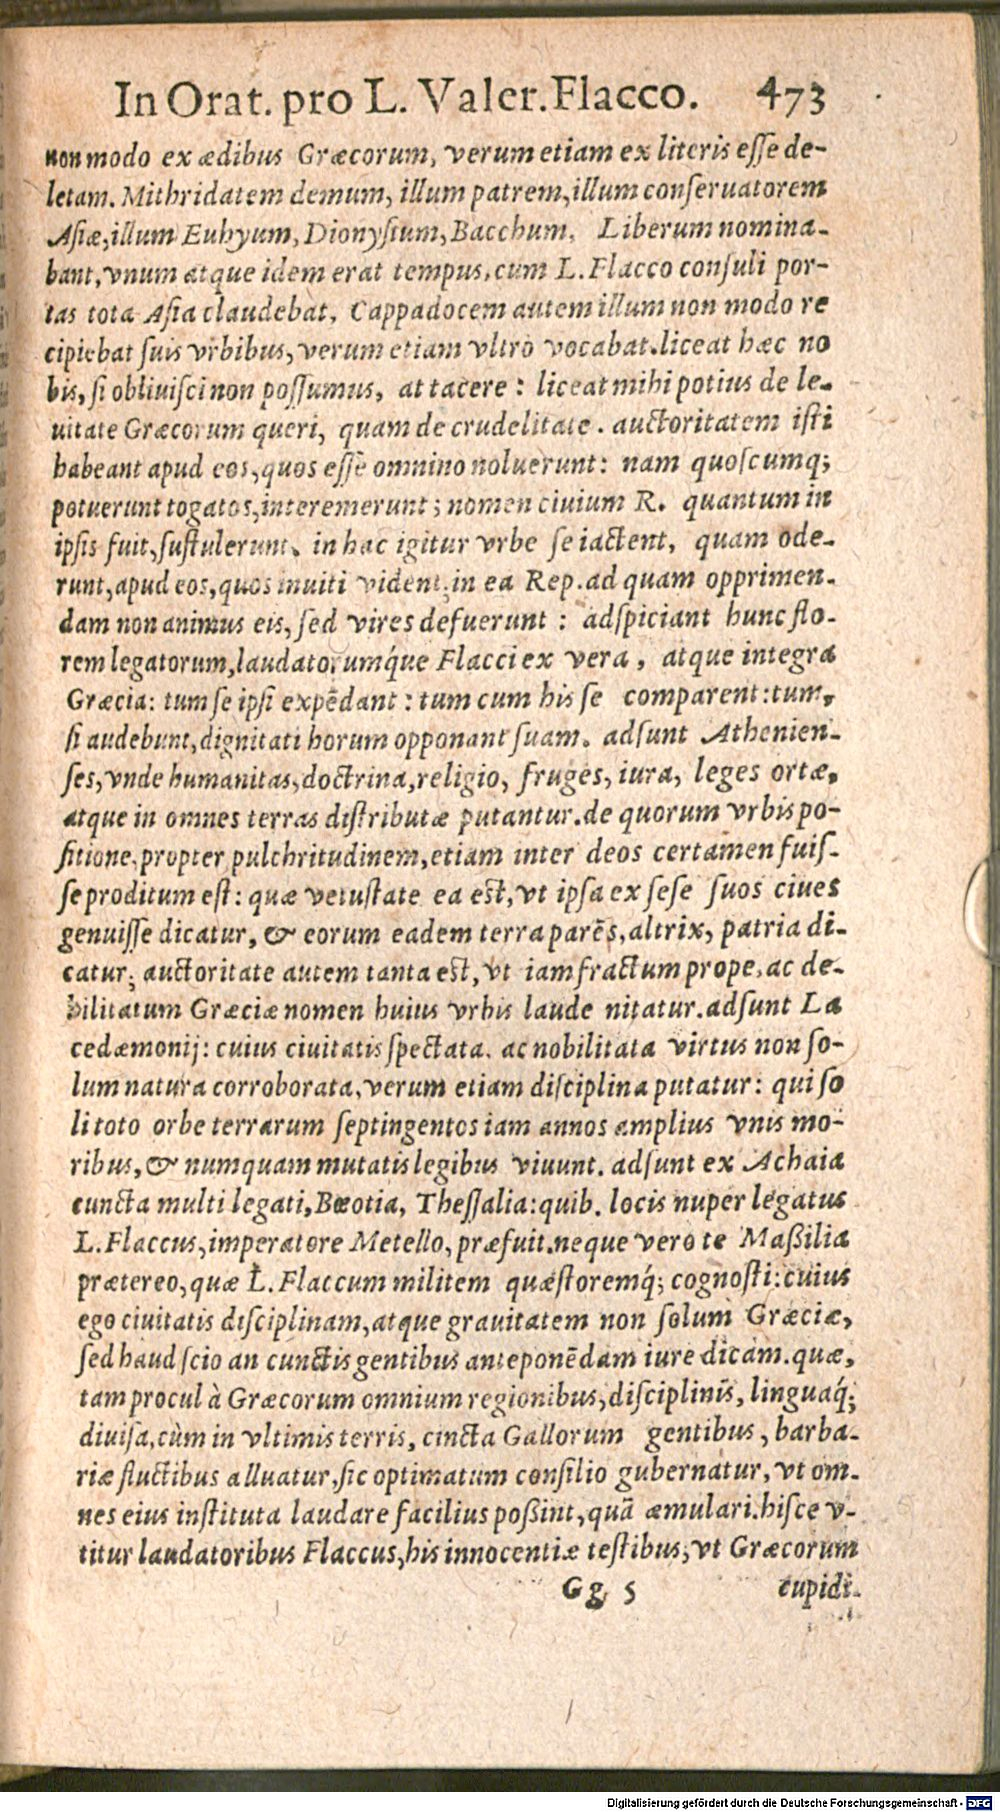 In Orat. pro L. Valer. Flacco. 473
non modo ex ædibus Græcorum, verum etiam ex literis eſſe de-
letam. Mithridatem demum, illum patrem, illum conſeruatorem
Aſiæ, illum Euhyum, Dionyſium, Bacchum, Liberum nomina-
bant, vnum atque idem erat tempus, cum L. Flacco conſuli por-
tas tota Aſia claudebat, Cappadocem autem illum non modo re
cipiebat ſuis vrbibus, verum etiam vltrò vocabat. liceat hæc no
bis, ſi obliuiſci non poſſumus, at tacere : liceat mihi potius de le-
uitate Græcorum queri, quam de crudelitate. auctoritatem iſti
habeant apud eos, quos eſſe omnino noluerunt: nam quoſcumq;
potuerunt togatos, interemerunt ; nomen ciuium R. quantum in
ipſis fuit, ſuſtulerunt. in hac igitur vrbe ſe iactent, quam ode-
runt, apud eos, quos inuiti vident, in ea Rep. ad quam opprimen-
dam non animus eis, ſed vires defuerunt : adſpiciant hunc flo-
rem legatorum, laudatorumq́ue Flacci ex vera, atque integra
Græcia: tum ſe ipſi expēdant : tum cum his ſe comparent: tum,
ſi audebunt, dignitati horum opponant ſuam. adſunt Athenien-
ſes, vnde humanitas, doctrina, religio, fruges, iura, leges ortæ,
atque in omnes terras diſtributæ putantur. de quorum vrbis po-
ſitione, propter pulchritudinem, etiam inter deos certamen fuiſ-
ſe proditum eſt: quæ vetuſtate ea eſt, vt ipſa ex ſeſe ſuos ciues
genuiſſe dicatur, & eorum eadem terra parēs, altrix, patria di-
catur; auctoritate autem tanta eſt, vt iam fractum prope, ac de-
bilitatum Græciæ nomen huius vrbis laude nitatur. adſunt La
cedæmonij: cuius ciuitatis ſpectata, ac nobilitata virtus non ſo-
lum natura corroborata, verum etiam diſciplina putatur: qui ſo
li toto orbe terrarum ſeptingentos iam annos amplius vnis mo-
ribus, & numquam mutatis legibus viuunt. adſunt ex Achaia
cuncta multi legati, Bœotia, Theſſalia: quib. locis nuper legatus
L. Flaccus, imperatore Metello, præfuit. neque vero te Maßilia
prætereo, quæ L. Flaccum militem quæſtoremq́; cognoſti: cuius
ego ciuitatis diſciplinam, atque grauitatem non ſolum Græciæ,
ſed haud ſcio an cunctis gentibus anteponēdam iure dicam. quæ,
tam procul à Græcorum omnium regionibus, diſciplinis, linguaq́;
diuiſa, cùm in vltimis terris, cincta Gallorum gentibus, barba-
riæ fluctibus alluatur, ſic optimatum conſilio gubernatur, vt om-
nes eius inſtituta laudare facilius poßint, quā æmulari. hiſce v-
titur laudatoribus Flaccus, his innocentiæ teſtibus, vt Græcorum
Gg 5 cupidi-
Digitalisierung gefördert durch die Deutsche Forschungsgemeinschaft - DFG